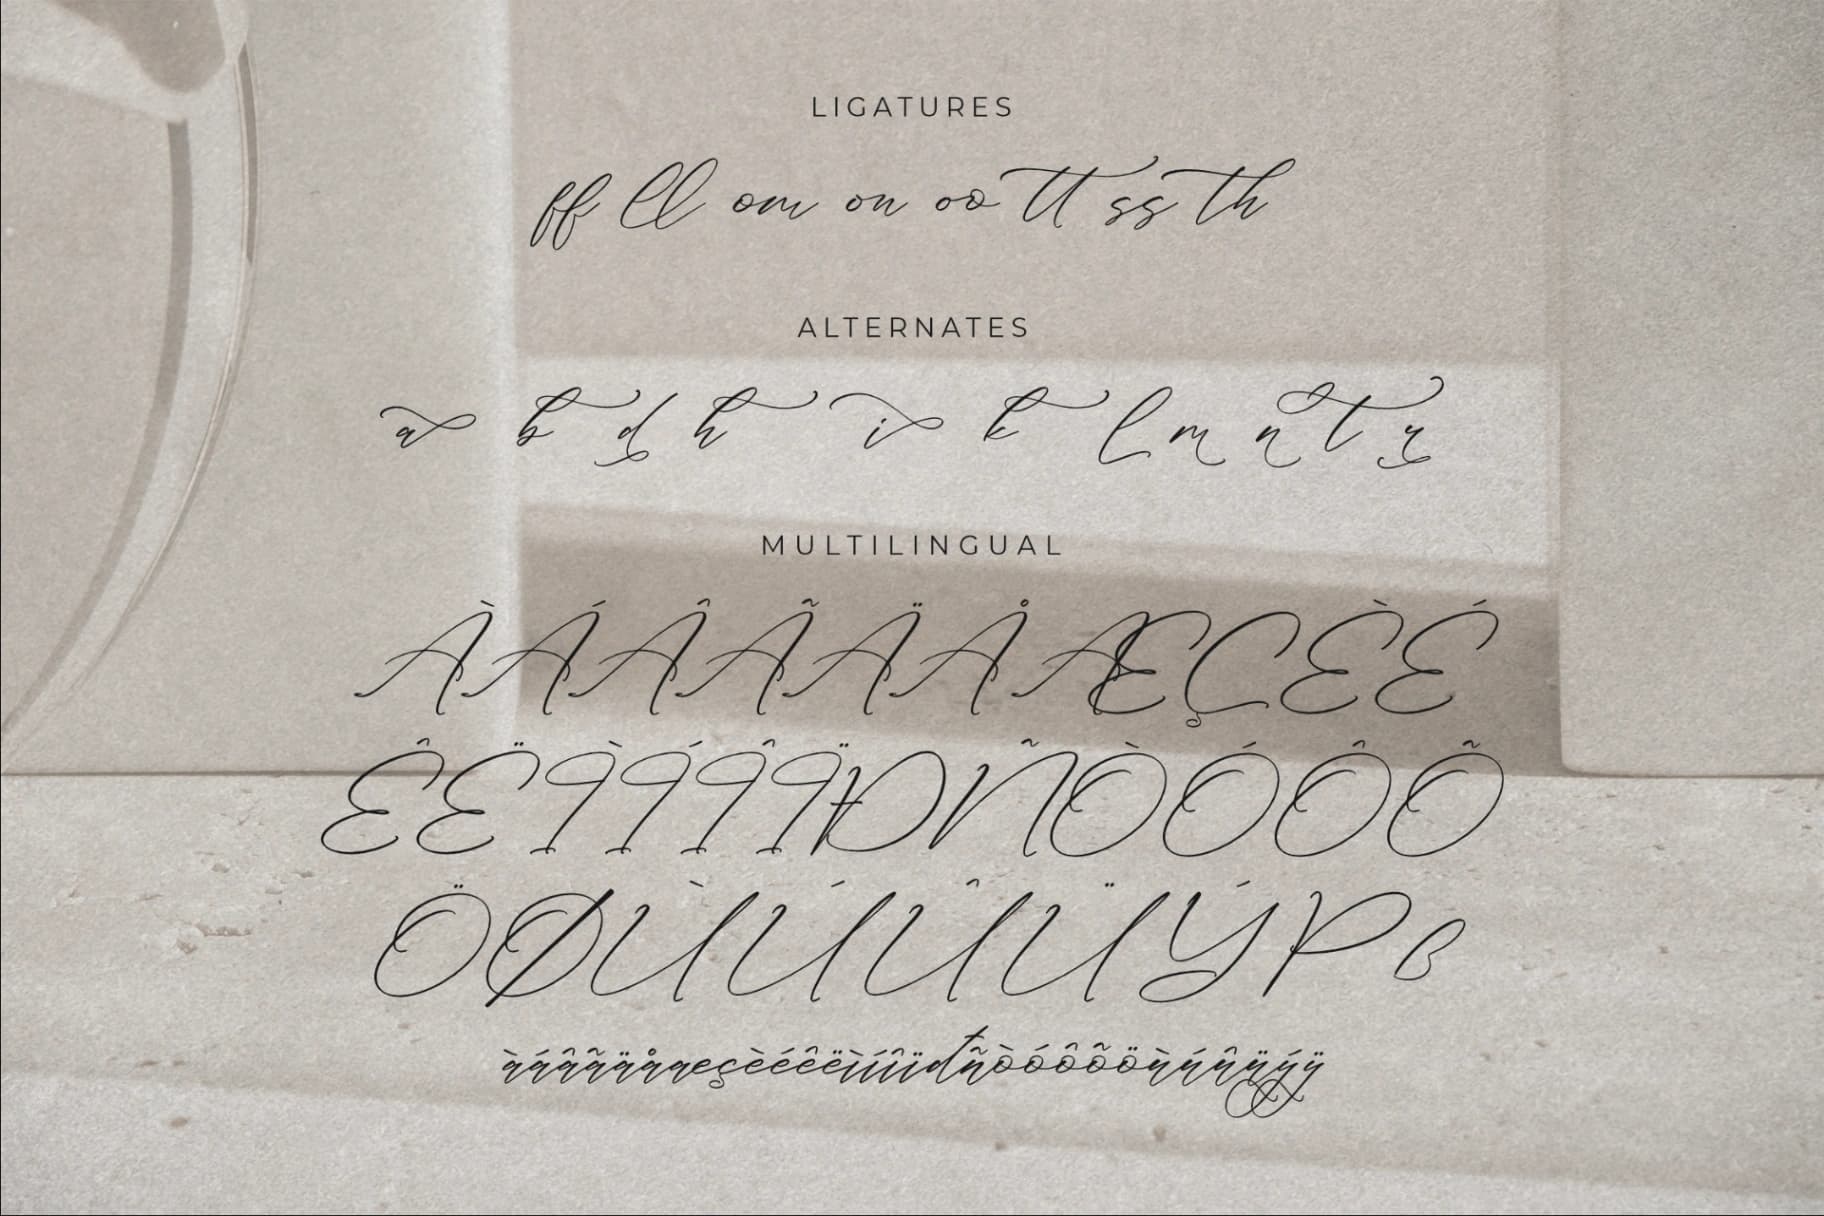 LIGATURES
ff ll om on oo tt ss th
ALTERNATES
a b d h i k l m n t r
MULTILINGUAL
À Á Â Ã Ä Å Æ Ç È É
Ê Ë Ì Í Î Ï Ð Ñ Ò Ó Ô Õ
Ö Ø Ù Ú Û Ü Ý Þ ß
àáâãäåæçèéêëìíîïđñòóôõöùúûüýÿ